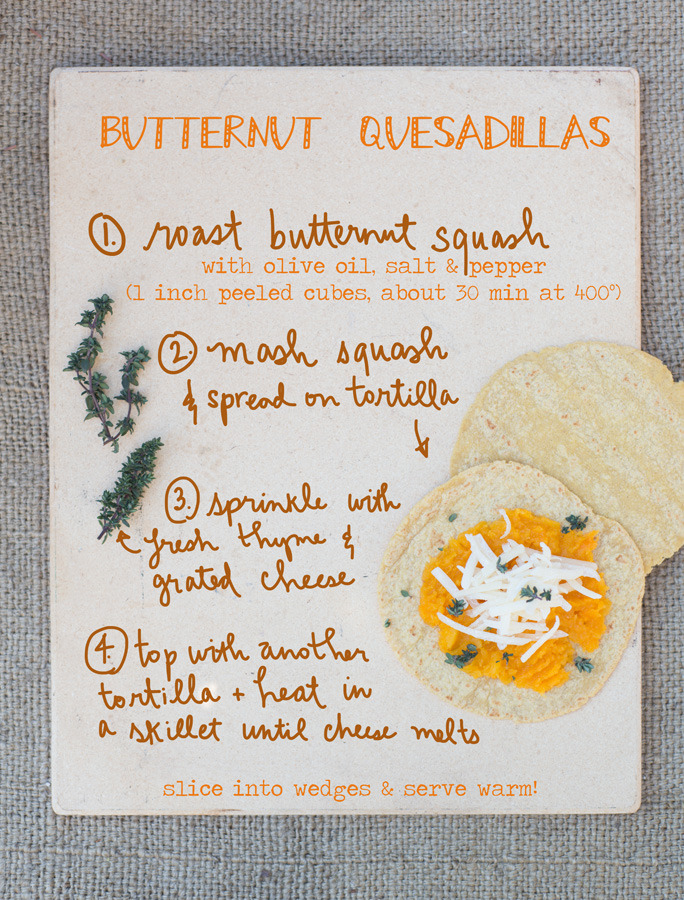 BUTTERNUT QUESADILLAS
1. roast butternut squash
with olive oil, salt & pepper
(1 inch peeled cubes, about 30 min at 400°)
2. mash squash
& spread on tortilla
3. sprinkle with
fresh thyme &
grated cheese
4. top with another
tortilla + heat in
a skillet until cheese melts
slice into wedges & serve warm!